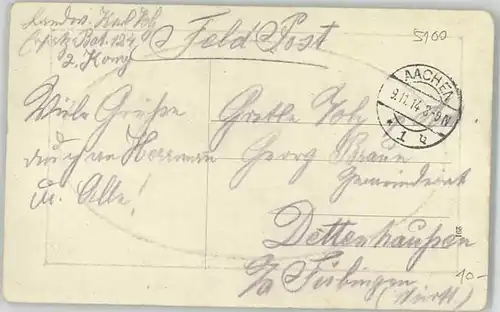 Landw. Karl
Ers. Batl. 124
2. Komp.
Feld Post
5100
AACHEN
9.11.14
* 1 b
Viele Grüße
auch an Herman
u. Alle!
Georg Braun
Gemeinderat
Dettenhausen
Tübingen
(Württ.)
10-